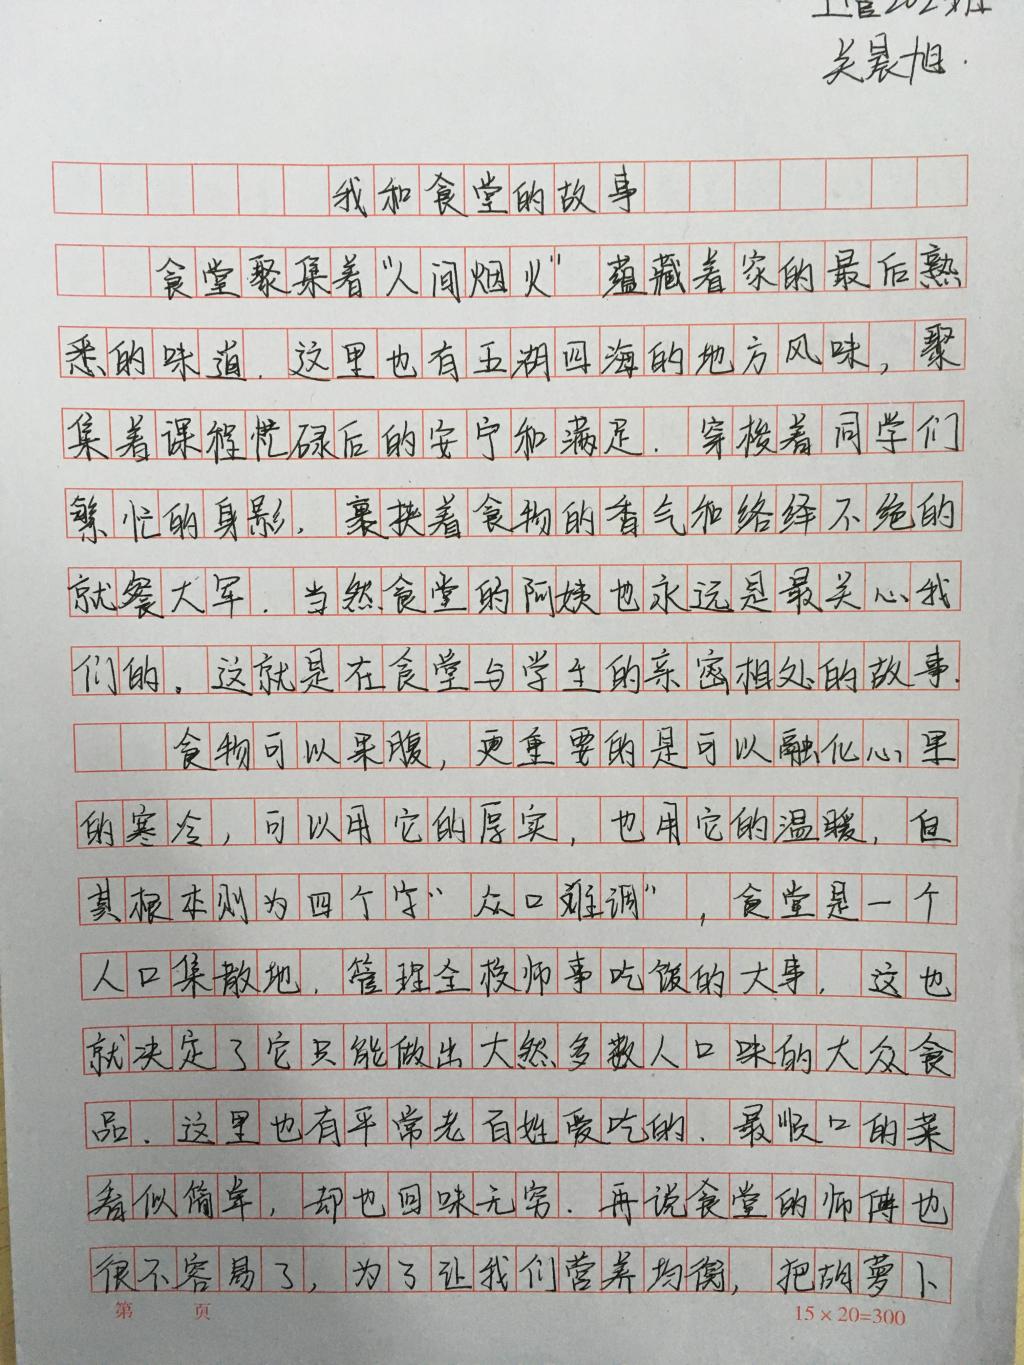 工管202班
关晨旭.
我和食堂的故事
食堂聚集着“人间烟火”蕴藏着家的最后熟
悉的味道.这里也有五湖四海的地方风味,聚
集着课程忙碌后的安宁和满足.穿梭着同学们
繁忙的身影,裹挟着食物的香气和络绎不绝的
就餐大军.当然食堂的阿姨也永远是最关心我
们的。这就是在食堂与学生的亲密相处的故事.
食物可以果腹,更重要的是可以融化心里
的寒冷,可以用它的厚实,也用它的温暖,但
其根本则为四个字“众口难调”,食堂是一个
人口集散地.管理全校师事吃饭的大事.这也
就决定了它只能做出大然多数人口味的大众食
品.这里也有平常老百姓爱吃的.最顺口的菜
看似简单,却也回味无穷.再说食堂的师傅也
很不容易了,为了让我们营养均衡,把胡萝卜
第 页
15×20=300